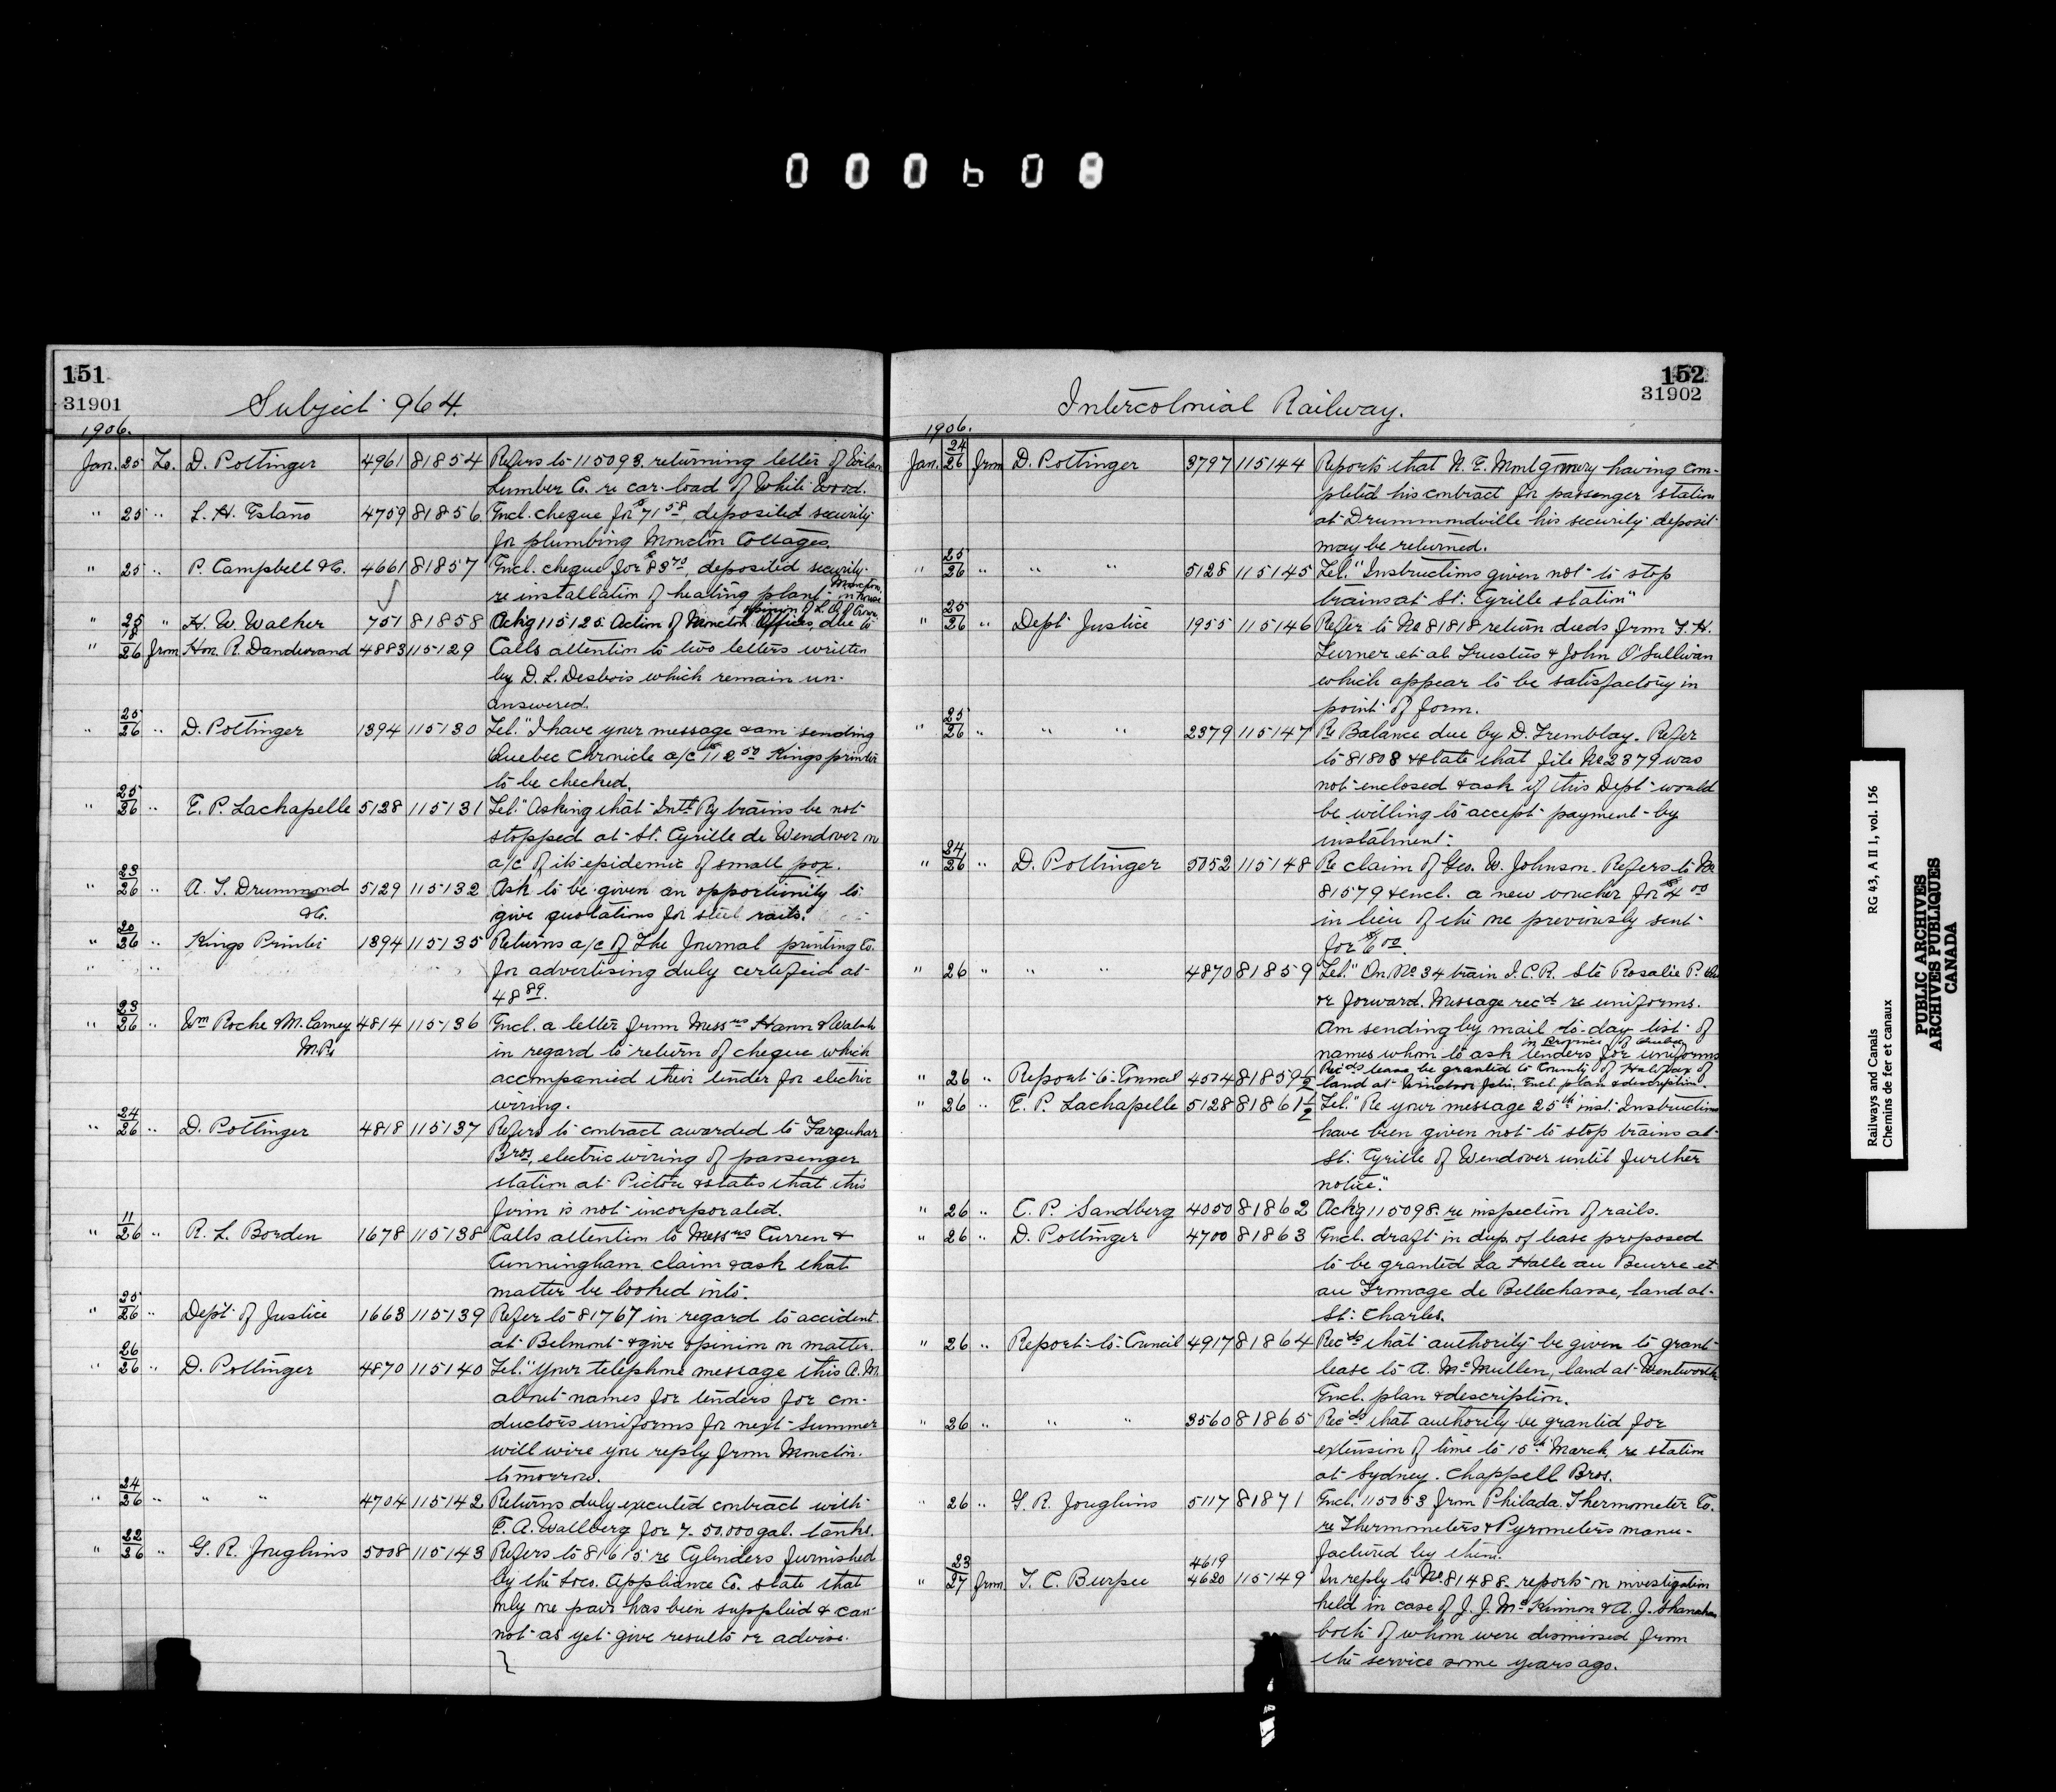 000608
151
31901
Subject 964.
1906.
Jan. 25 To. D. Pottinger 4961 81854 Refers to 115093. returning letter of
Lumber Co. re car-load of White Wood.
" 25 " L. H. Estano 4759 81856 Encl. cheque for $71 58, deposited security
for plumbing Moncton Cottages.
" 25 " P. Campbell & Co. 4661 81857 Encl. cheque for $83 70, deposited security
re installation of heating plant in Moncton house
" 25 " H. W. Walker 751 81858 Ackg 115125 Action of Moncton Offices, due to opinion of L. O. of Crown
" 18/26 from Hon. R. Dandurand 4883 115129 Calls attention to two letters written
by D. L. Desbois which remain un-
answered.
" 25/26 " D. Pottinger 1394 115130 Tel. "I have your message & am sending
Quebec Chronicle a/c $112 50 Kings printer
to be checked.
" 25/26 " E. P. Lachapelle 5128 115131 Tel. "Asking that Intl Ry trains be not
stopped at St. Cyrille de Wendover on
a/c of its epidemic of small pox.
" 23/26 " A. T. Drummond 5129 115132 Ask to be given an opportunity to
& Co. give quotations for steel rails.
" 20/26 " Kings Printer 1394 115135 Returns a/c of The Journal printing Co.
" " for advertising duly certified at
48 89.
" 23/26 " Wm Roche & M. Carney 4814 115136 Encl. a letter from Messrs Hann & Walsh
M.Ps in regard to return of cheque which
accompanied their tender for electric
wiring.
" 24/26 " D. Pottinger 4818 115137 Refers to contract awarded to Farquhar
Bros, electric wiring of passenger
station at Pictou & states that this
firm is not incorporated.
" 11/26 " R. L. Borden 1678 115138 Calls attention to Messrs Curren &
Cunningham claim & ask that
matter be looked into.
" 25/26 " Dept. of Justice 1663 115139 Refer to 81767 in regard to accident
at Belmont & give opinion on matter.
" 26/26 " D. Pottinger 4870 115140 Tel. "Your telephone message this A.M.
about names for tenders for con-
ductors uniforms for next summer
will wire you reply from Moncton
tomorrow.
" 24/26 " " " 4704 115142 Returns duly executed contract with
E. A. Wallberg for 7- 50,000 gal. tanks.
" 22/26 " G. R. Joughins 5008 115143 Refers to 81615 re Cylinders furnished
by the Loco. Appliance Co. state that
only one pair has been supplied & can-
not as yet give results or advise.
152
31902
Intercolonial Railway.
1906.
Jan. 24/26 from D. Pottinger 3797 115144 Reports that N. E. Montgomery having com-
pleted his contract for passenger station
at Drummondville his security deposit
may be returned.
" 25/26 " " " 5128 115145 Tel. "Instructions given not to stop
trains at St. Cyrille station"
" 25/26 " Dept Justice 1955 115146 Refer to No 81818 return deeds from F. H.
Turner et al Trustees & John O'Sullivan
which appear to be satisfactory in
point of form.
" 25/26 " " " 2379 115147 Re Balance due by D. Tremblay. Refer
to 81808 & state that file No 2379 was
not enclosed & ask if this Dept would
be willing to accept payment by
instalment.
" 24/26 " D. Pottinger 5052 115148 Re claim of Geo. W. Johnson. Refers to No
81579 & encl. a new voucher for $4 00
in lieu of the one previously sent
for $6 00.
" 26 " " " 4870 81859 Tel. "On No 34 train I.C.R. Ste Rosalie P. Que
or forward. Message rec'd re uniforms.
Am sending by mail to-day list of
names whom to ask tenders for uniforms in Province of Quebec
" 26 " Report to Council 4504 81859½ Recds lease be granted to County of Halifax of
land at Windsor Jctn. Encl. plan & description.
" 26 " E. P. Lachapelle 5128 81861½ Tel. "Re your message 25th inst. Instructions
have been given not to stop trains at
St. Cyrille of Wendover until further
notice."
" 26 " C. P. Sandberg 4050 81862 Ackg 115098 re inspection of rails.
" 26 " D. Pottinger 4700 81863 Encl. draft in dup. of lease proposed
to be granted La Halle au Beurre et
au Fromage de Bellechasse, land at
St. Charles.
" 26 " Report to Council 4917 81864 Recds that authority be given to grant
lease to A. McMullen, land at Wentworth
Encl. plan & description.
" 26 " " " 3560 81865 Recds that authority be granted for
extension of time to 15th March, re station
at Sydney. Chappell Bros.
" 26 " G. R. Joughins 5117 81871 Encl. 115053 from Philada. Thermometer Co.
re Thermometers & Pyrometers manu-
factured by them.
" 23/27 from T. C. Burpee 4619 4620 115149 In reply to No. 81488. reports on investigation
held in case of J. J. McKinnon & A. J. Shanahan
both of whom were dismissed from
the service some years ago.
Railways and Canals RG 43, A II 1, vol. 156
Chemins de fer et canaux
PUBLIC ARCHIVES
ARCHIVES PUBLIQUES
CANADA